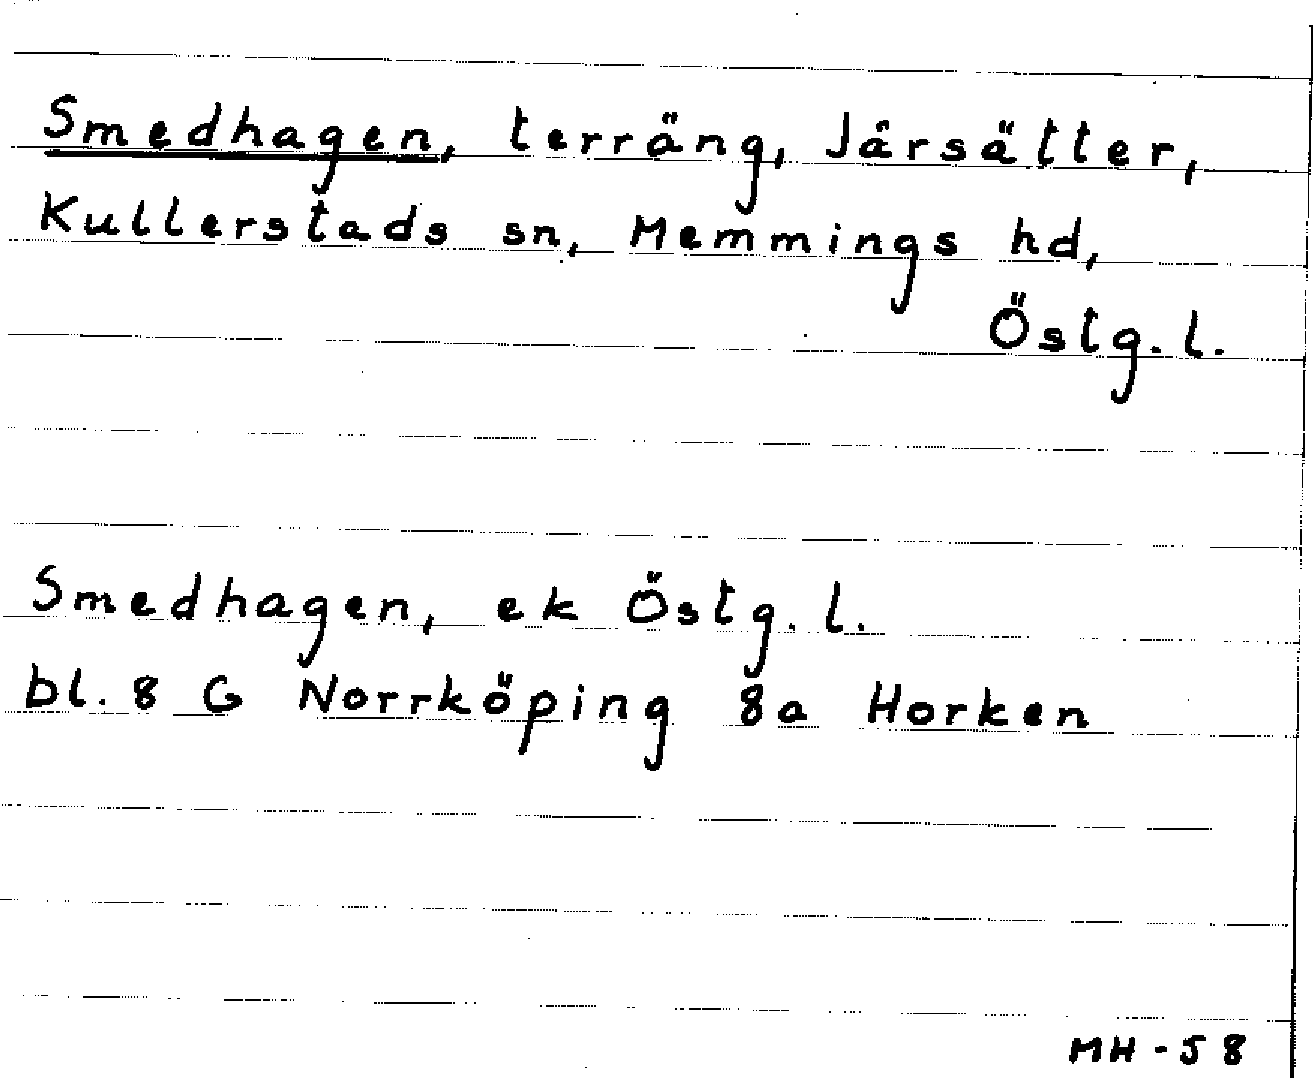 Smedhagen, terräng, Jårsätter,
Kullerstads sn, Memmings hd,
Östg. l.
Smedhagen, ek Östg. l.
bl. 8 G Norrköping 8a Horken
MH - 58